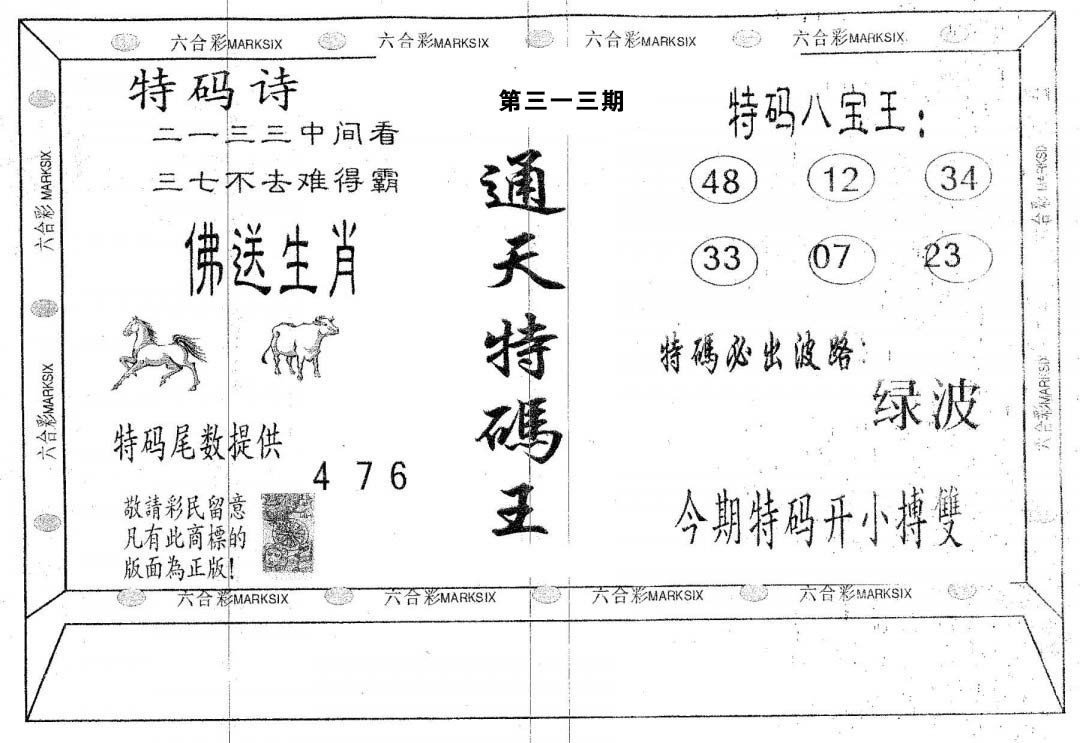 六合彩MARKSIX 六合彩MARKSIX 六合彩MARKSIX 六合彩MARKSIX
特码诗
二一三三中间看
三七不去难得霸
佛送生肖
特码尾数提供
4 7 6
敬請彩民留意
凡有此商標的
版面為正版!
第三一三期
通天特碼王
特码八宝王:
48 12 34
33 07 23
特碼必出波路:
绿波
今期特码开小搏雙
六合彩MARKSIX
六合彩MARKSIX
六合彩MARKSIX
六合彩MARKSIX
六合彩MARKSIX 六合彩MARKSIX 六合彩MARKSIX 六合彩MARKSIX